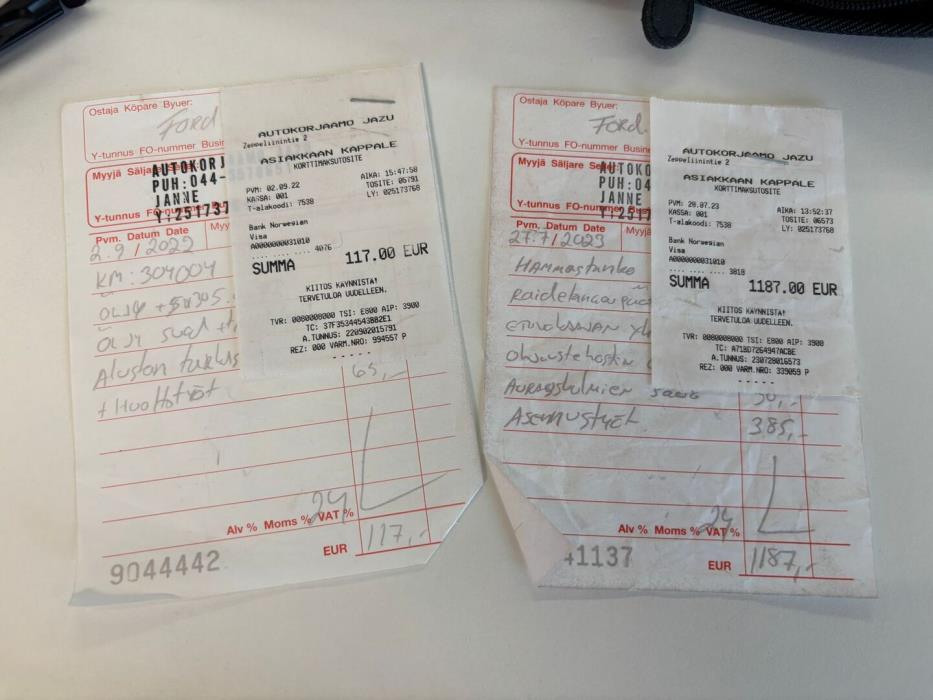 Ostaja Köpare Byuer:
Ford
Y-tunnus FO-nummer Busin
Myyjä Säljare Se
AUTOKORJ
PUH:044-
JANNE
Y:251737
Y-tunnus FO-nu
Pvm. Datum Date
Myy
2.9/2022
KM: 304004
Öljy suod
Alustan tarkas
+ Huoltotyöt
65,-
Alv % Moms % VAT %
24
EUR
117,-
9044442
AUTOKORJAAMO JAZU
Zeppeliinintie 2
ASIAKKAAN KAPPALE
KORTTIMAKSUTOSITE
PVM: 02.09.22 AIKA: 15:47:58
KASSA: 001 TOSITE: 05791
T-alakoodi: 7538 LY: 025173768
Bank Norwegian
Visa
A0000000031010
.... .... .... 4076
SUMMA 117.00 EUR
KIITOS KÄYNNISTÄ!
TERVETULOA UUDELLEEN.
TVR: 0080008000 TSI: E800 AIP: 3900
TC: 37F35344543B82E1
A.TUNNUS: 220902015791
REZ: 000 VARM.NRO: 994557 P
- - - - -
Ostaja Köpare Byuer:
Ford
Y-tunnus FO-nummer Busin
Myyjä Säljare Se
AUTOKO
PUH:04
JANNE
Y:2517
Y-tunnus FO-numm
Pvm. Datum Date
Myy
27.7/2023
Hammastanko
Raidetangon pää
etuvakaajan yl
Ohjaustehostin
Aurauskulmien säätö
50,-
Asennustyöt.
385,-
Alv % Moms % VAT %
24
EUR
1187,-
41137
AUTOKORJAAMO JAZU
Zeppeliinintie 2
ASIAKKAAN KAPPALE
KORTTIMAKSUTOSITE
PVM: 28.07.23 AIKA: 13:52:37
KASSA: 001 TOSITE: 06573
T-alakoodi: 7538 LY: 025173768
Bank Norwegian
Visa
A0000000031010
.... .... .... 3818
SUMMA 1187.00 EUR
KIITOS KÄYNNISTÄ!
TERVETULOA UUDELLEEN.
TVR: 0080008000 TSI: E800 AIP: 3900
TC: A71BD7264947ACBE
A.TUNNUS: 230728016573
REZ: 000 VARM.NRO: 339059 P
- - - - -